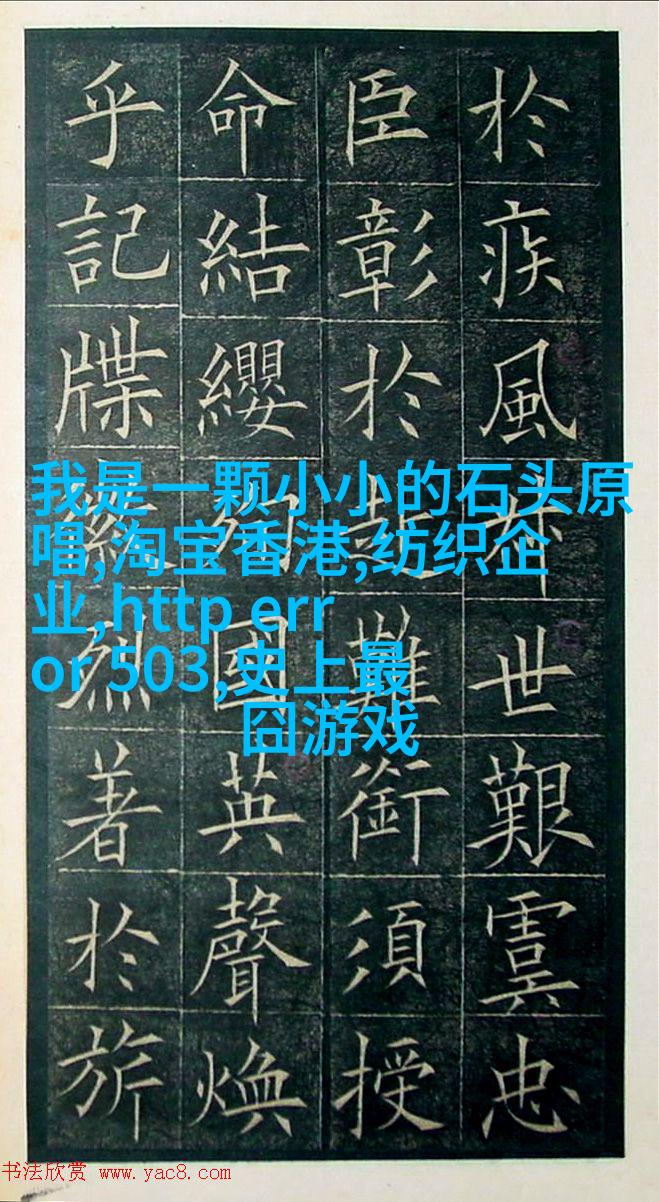 於疾風世艱虞忠
臣彰於難銜須授
命結纓國英聲煥
乎記牒烈著於旂
我是一颗小小的石头原
唱,淘宝香港,纺织企
业,http err
or 503,史上最
囧游戏
书法欣赏 www.yac8.com